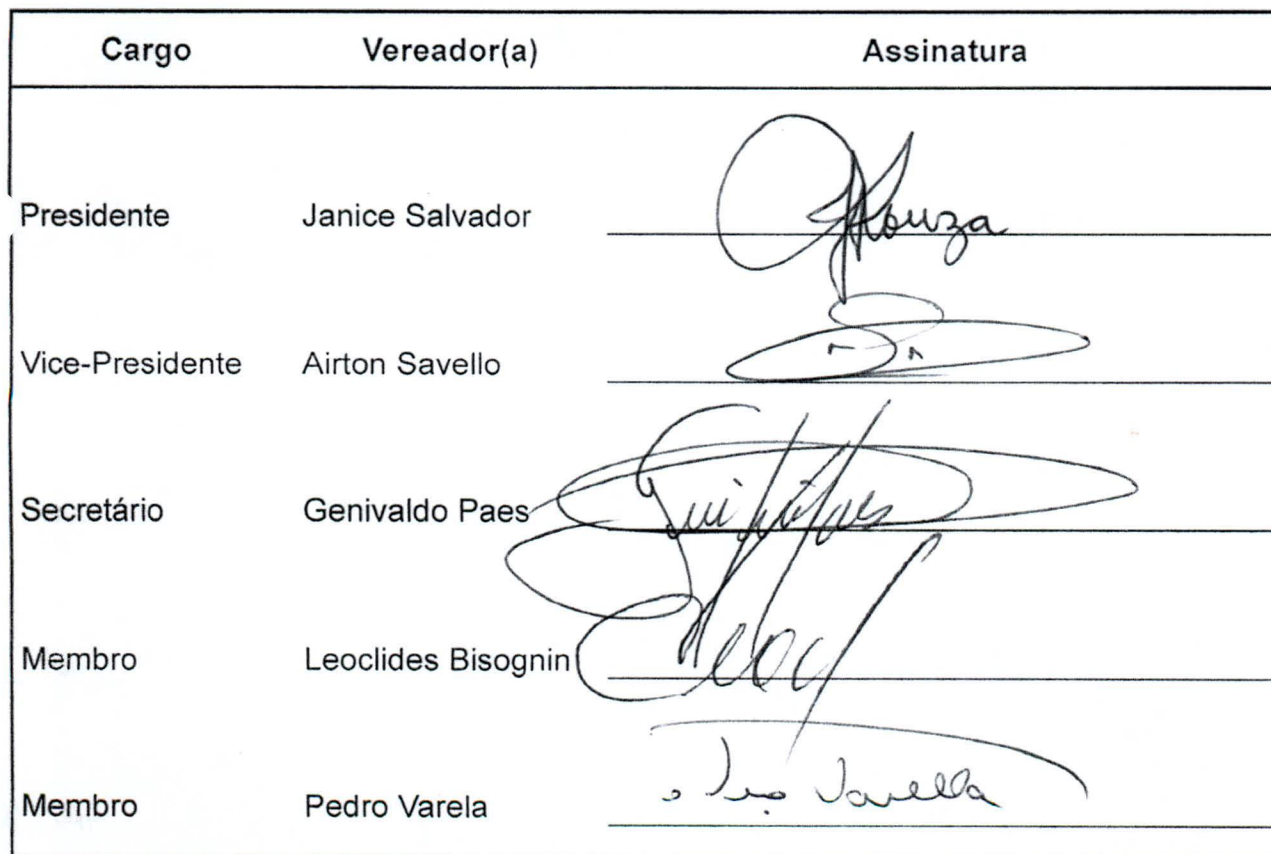 Cargo Vereador(a) Assinatura
Presidente Janice Salvador
Vice-Presidente Airton Savello
Secretário Genivaldo Paes
Membro Leoclides Bisognin
Membro Pedro Varela Varella